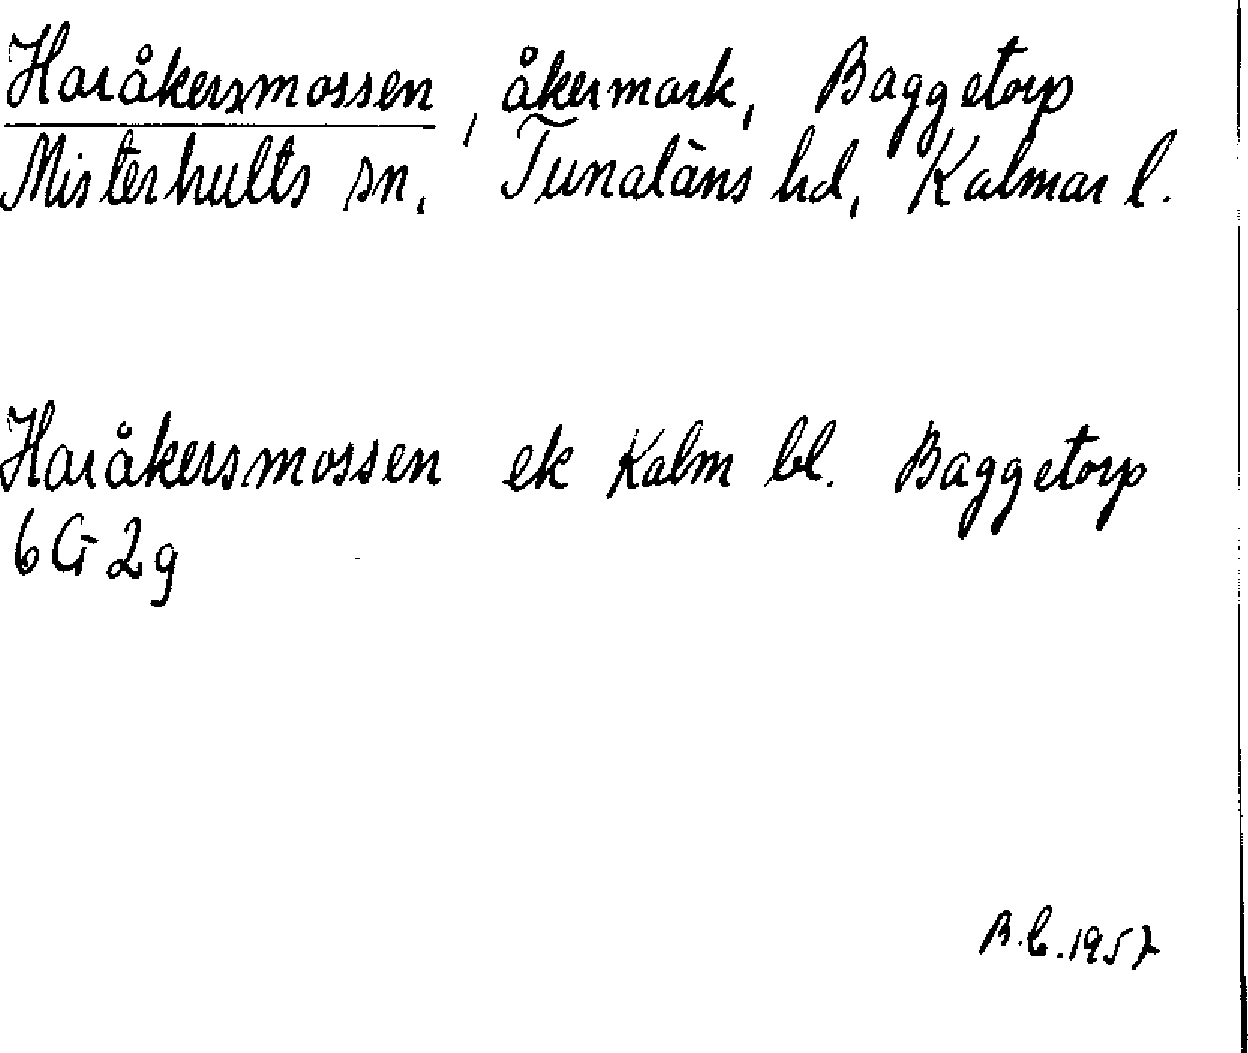 Haråkersmossen, åkermark, Baggetorp
Misterhults sn, Tunaläns hd, Kalmar l.
Haråkersmossen ek Kalm bl. Baggetorp
6G 2g
B.C. 1957